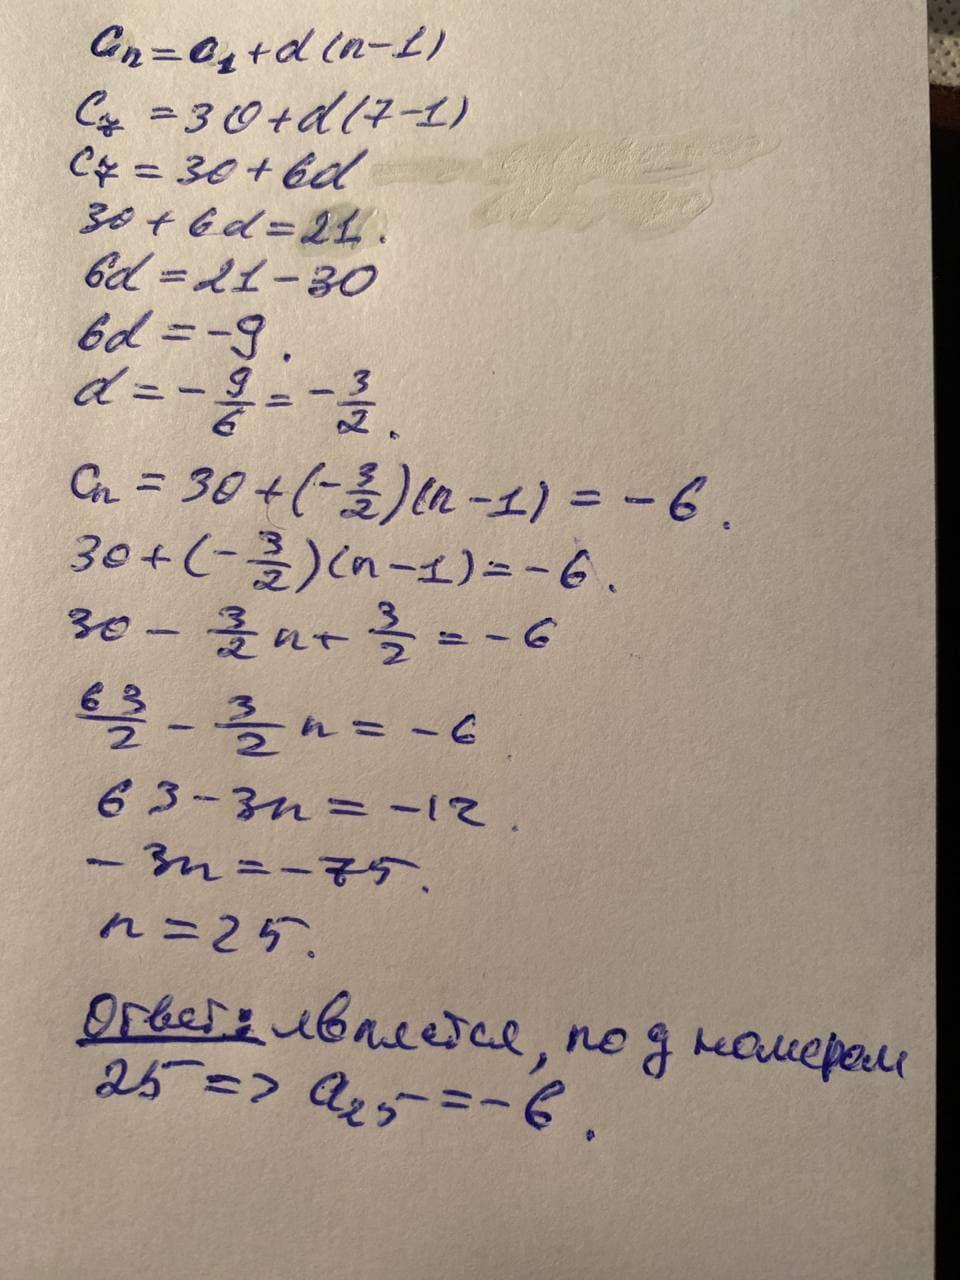 Cn = C1 + d(n-1)
C7 = 30 + d(7-1)
C7 = 30 + 6d
30 + 6d = 21.
6d = 21 - 30
6d = -9.
d = -9/6 = -3/2.
Cn = 30 + (-3/2)(n-1) = -6.
30 + (-3/2)(n-1) = -6.
30 - 3/2 n + 3/2 = -6
63/2 - 3/2 n = -6
63 - 3n = -12.
-3n = -75.
n = 25.
Ответ: является, под номером
25 => a25 = -6.